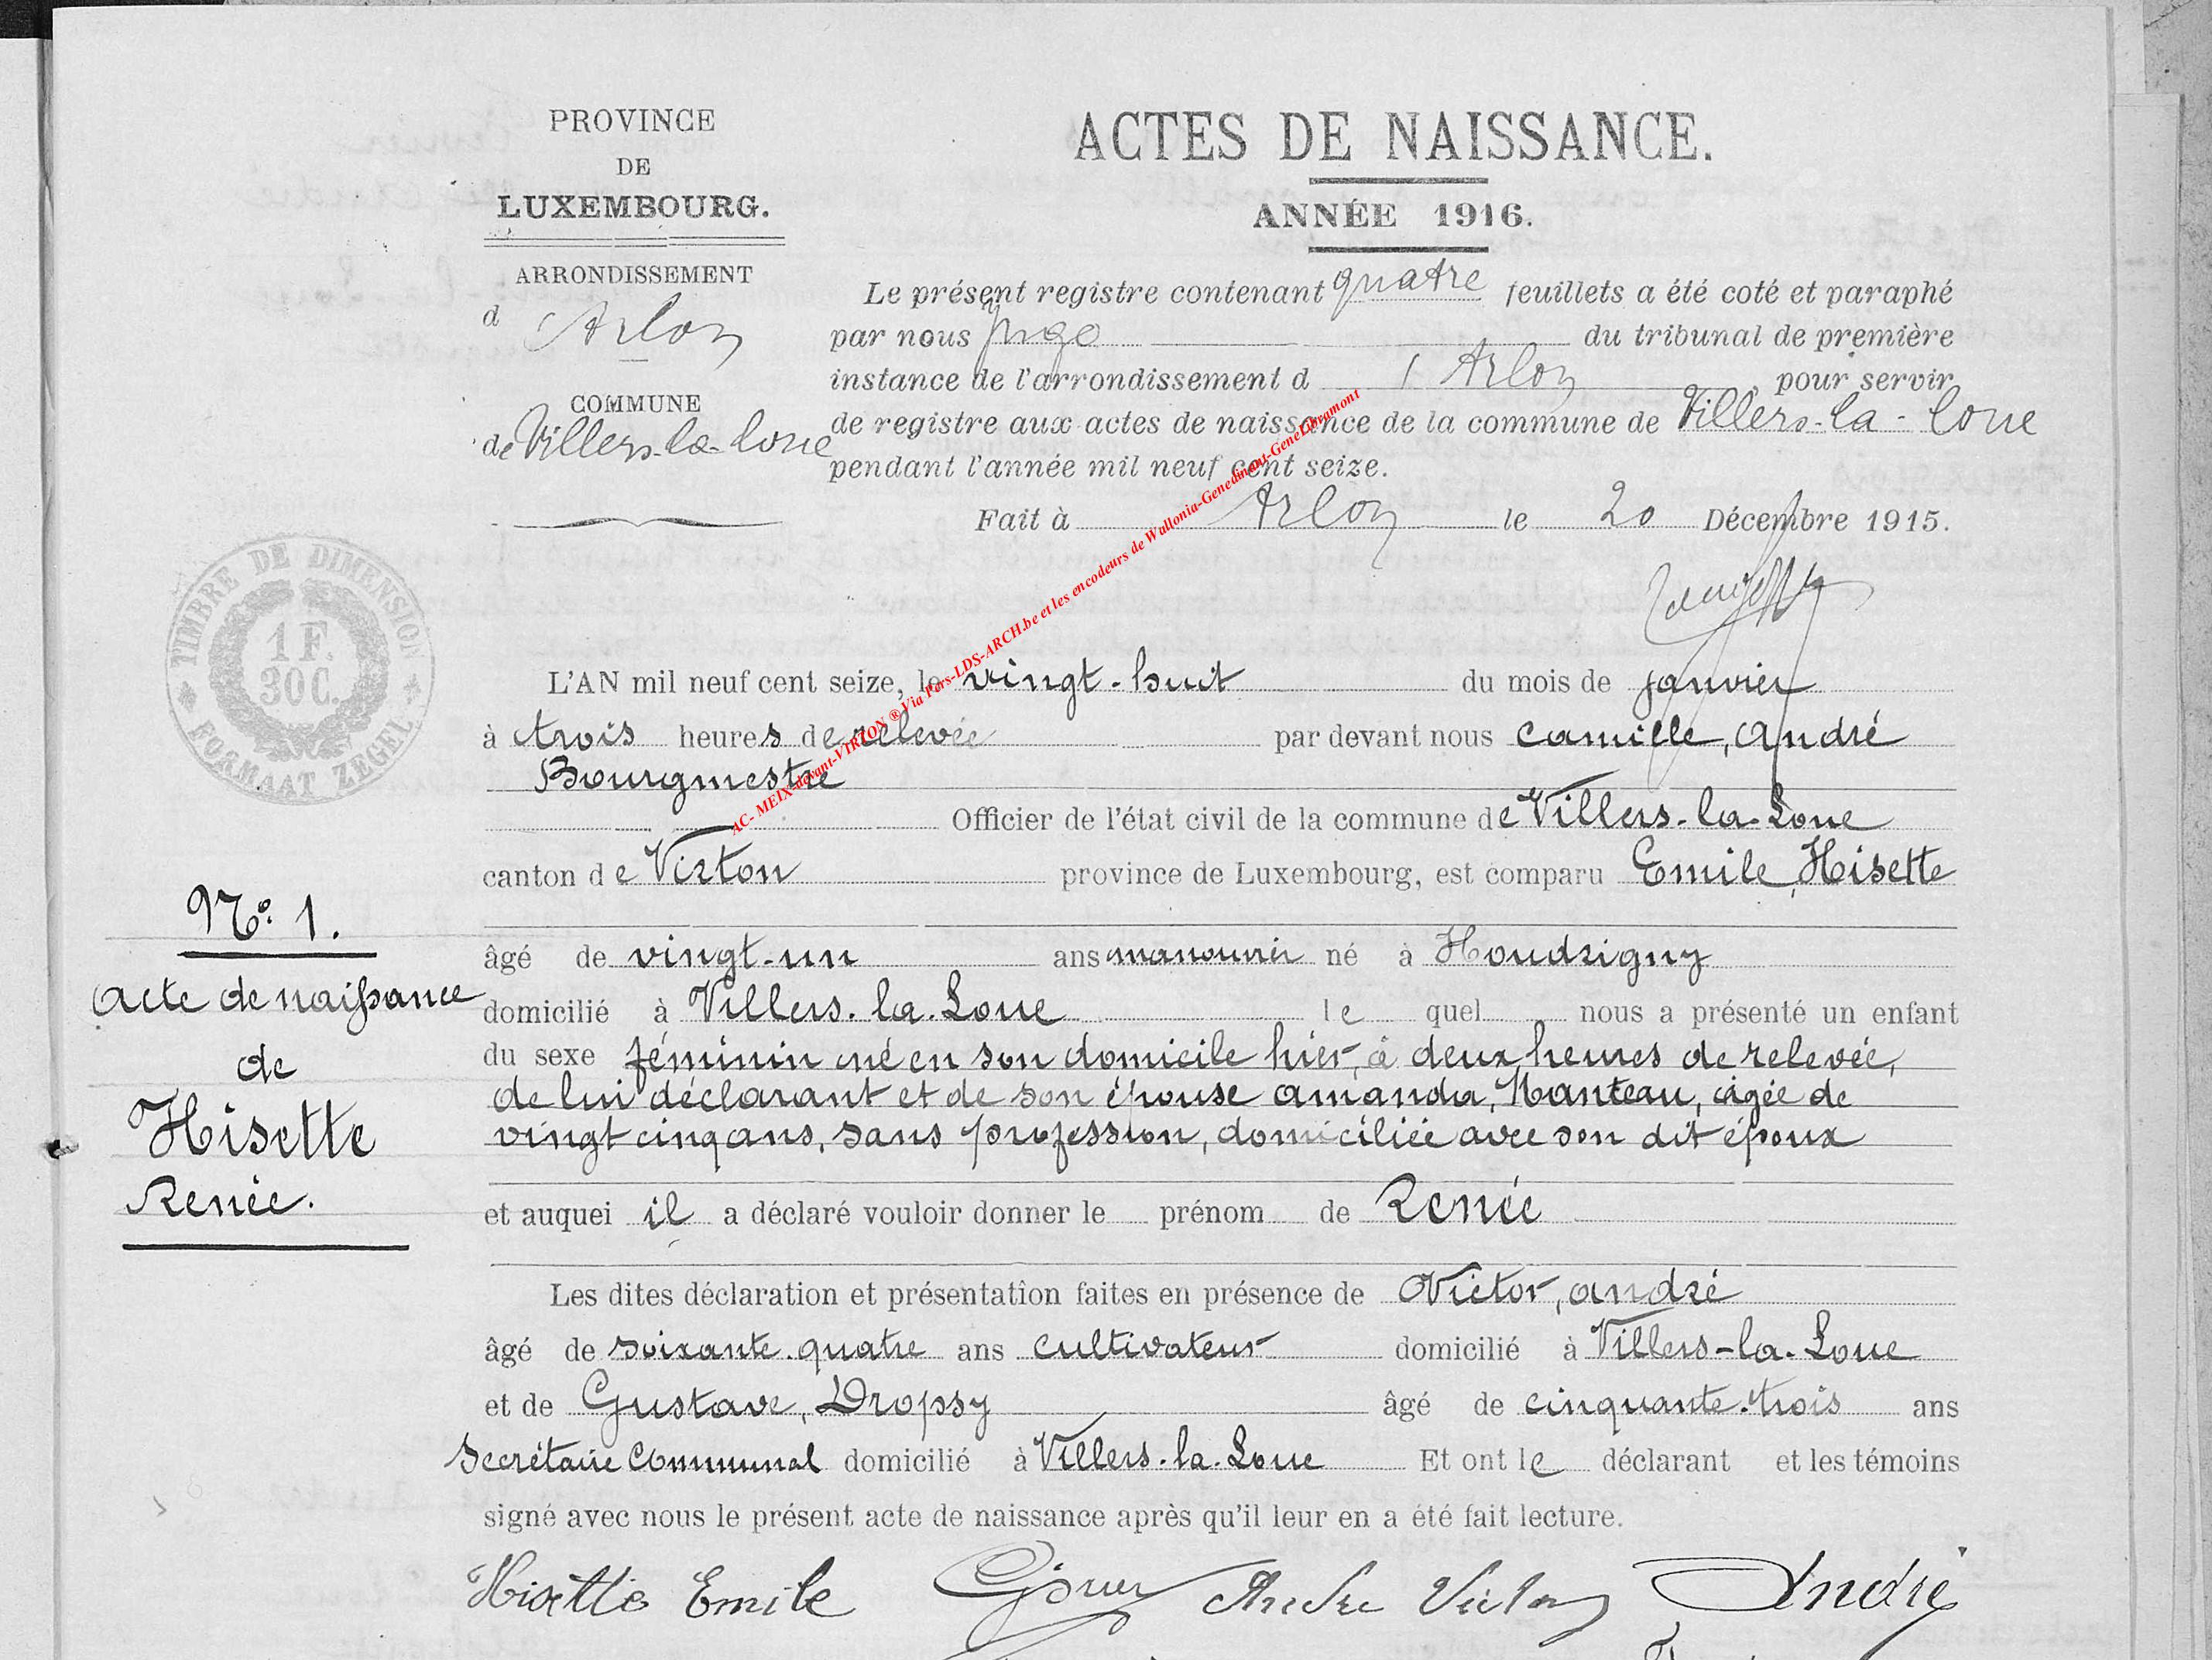 PROVINCE
DE
LUXEMBOURG.
ARRONDISSEMENT
d'Arlon
COMMUNE
de Villers-la-Loue
ACTES DE NAISSANCE.
ANNÉE 1916.
Le présent registre contenant quatre feuillets a été coté et paraphé
par nous juge du tribunal de première
instance de l'arrondissement d'Arlon, pour servir
de registre aux actes de naissance de la commune de Villers-la-Loue
pendant l'année mil neuf cent seize.
Fait à Arlon le 20 Décembre 1915.
TIMBRE DE DIMENSION
1 F.
30 C.
FORMAAT ZEGEL
AC- MEIX-devant-VIRTON ® Via Pers-LDS-ARCH.be et les encodeurs de Wallonia-Genedinant-GeneLibramont
L'AN mil neuf cent seize, le vingt-huit du mois de janvier
à trois heures de relevée par devant nous Camille, André
Bourgmestre
Officier de l'état civil de la commune de Villers-la-Loue
canton de Virton province de Luxembourg, est comparu Emile, Hisette
âgé de vingt-un ans manouvrier né à Houdrigny
domicilié à Villers-la-Loue lequel nous a présenté un enfant
du sexe féminin né en son domicile hier, à deux heures de relevée,
de lui déclarant et de son épouse Amanda, Nanteau, âgée de
vingt cinq ans, sans profession, domiciliée avec son dit époux
et auquel il a déclaré vouloir donner le prénom de Renée
N° 1.
Acte de naissance
de
Hisette
Renée.
Les dites déclaration et présentation faites en présence de Victor, André
âgé de soixante-quatre ans cultivateur domicilié à Villers-la-Loue
et de Gustave, Dropsy âgé de cinquante-trois ans
Secrétaire Communal domicilié à Villers-la-Loue Et ont le déclarant et les témoins
signé avec nous le présent acte de naissance après qu'il leur en a été fait lecture.
Hisette Emile André Victor André